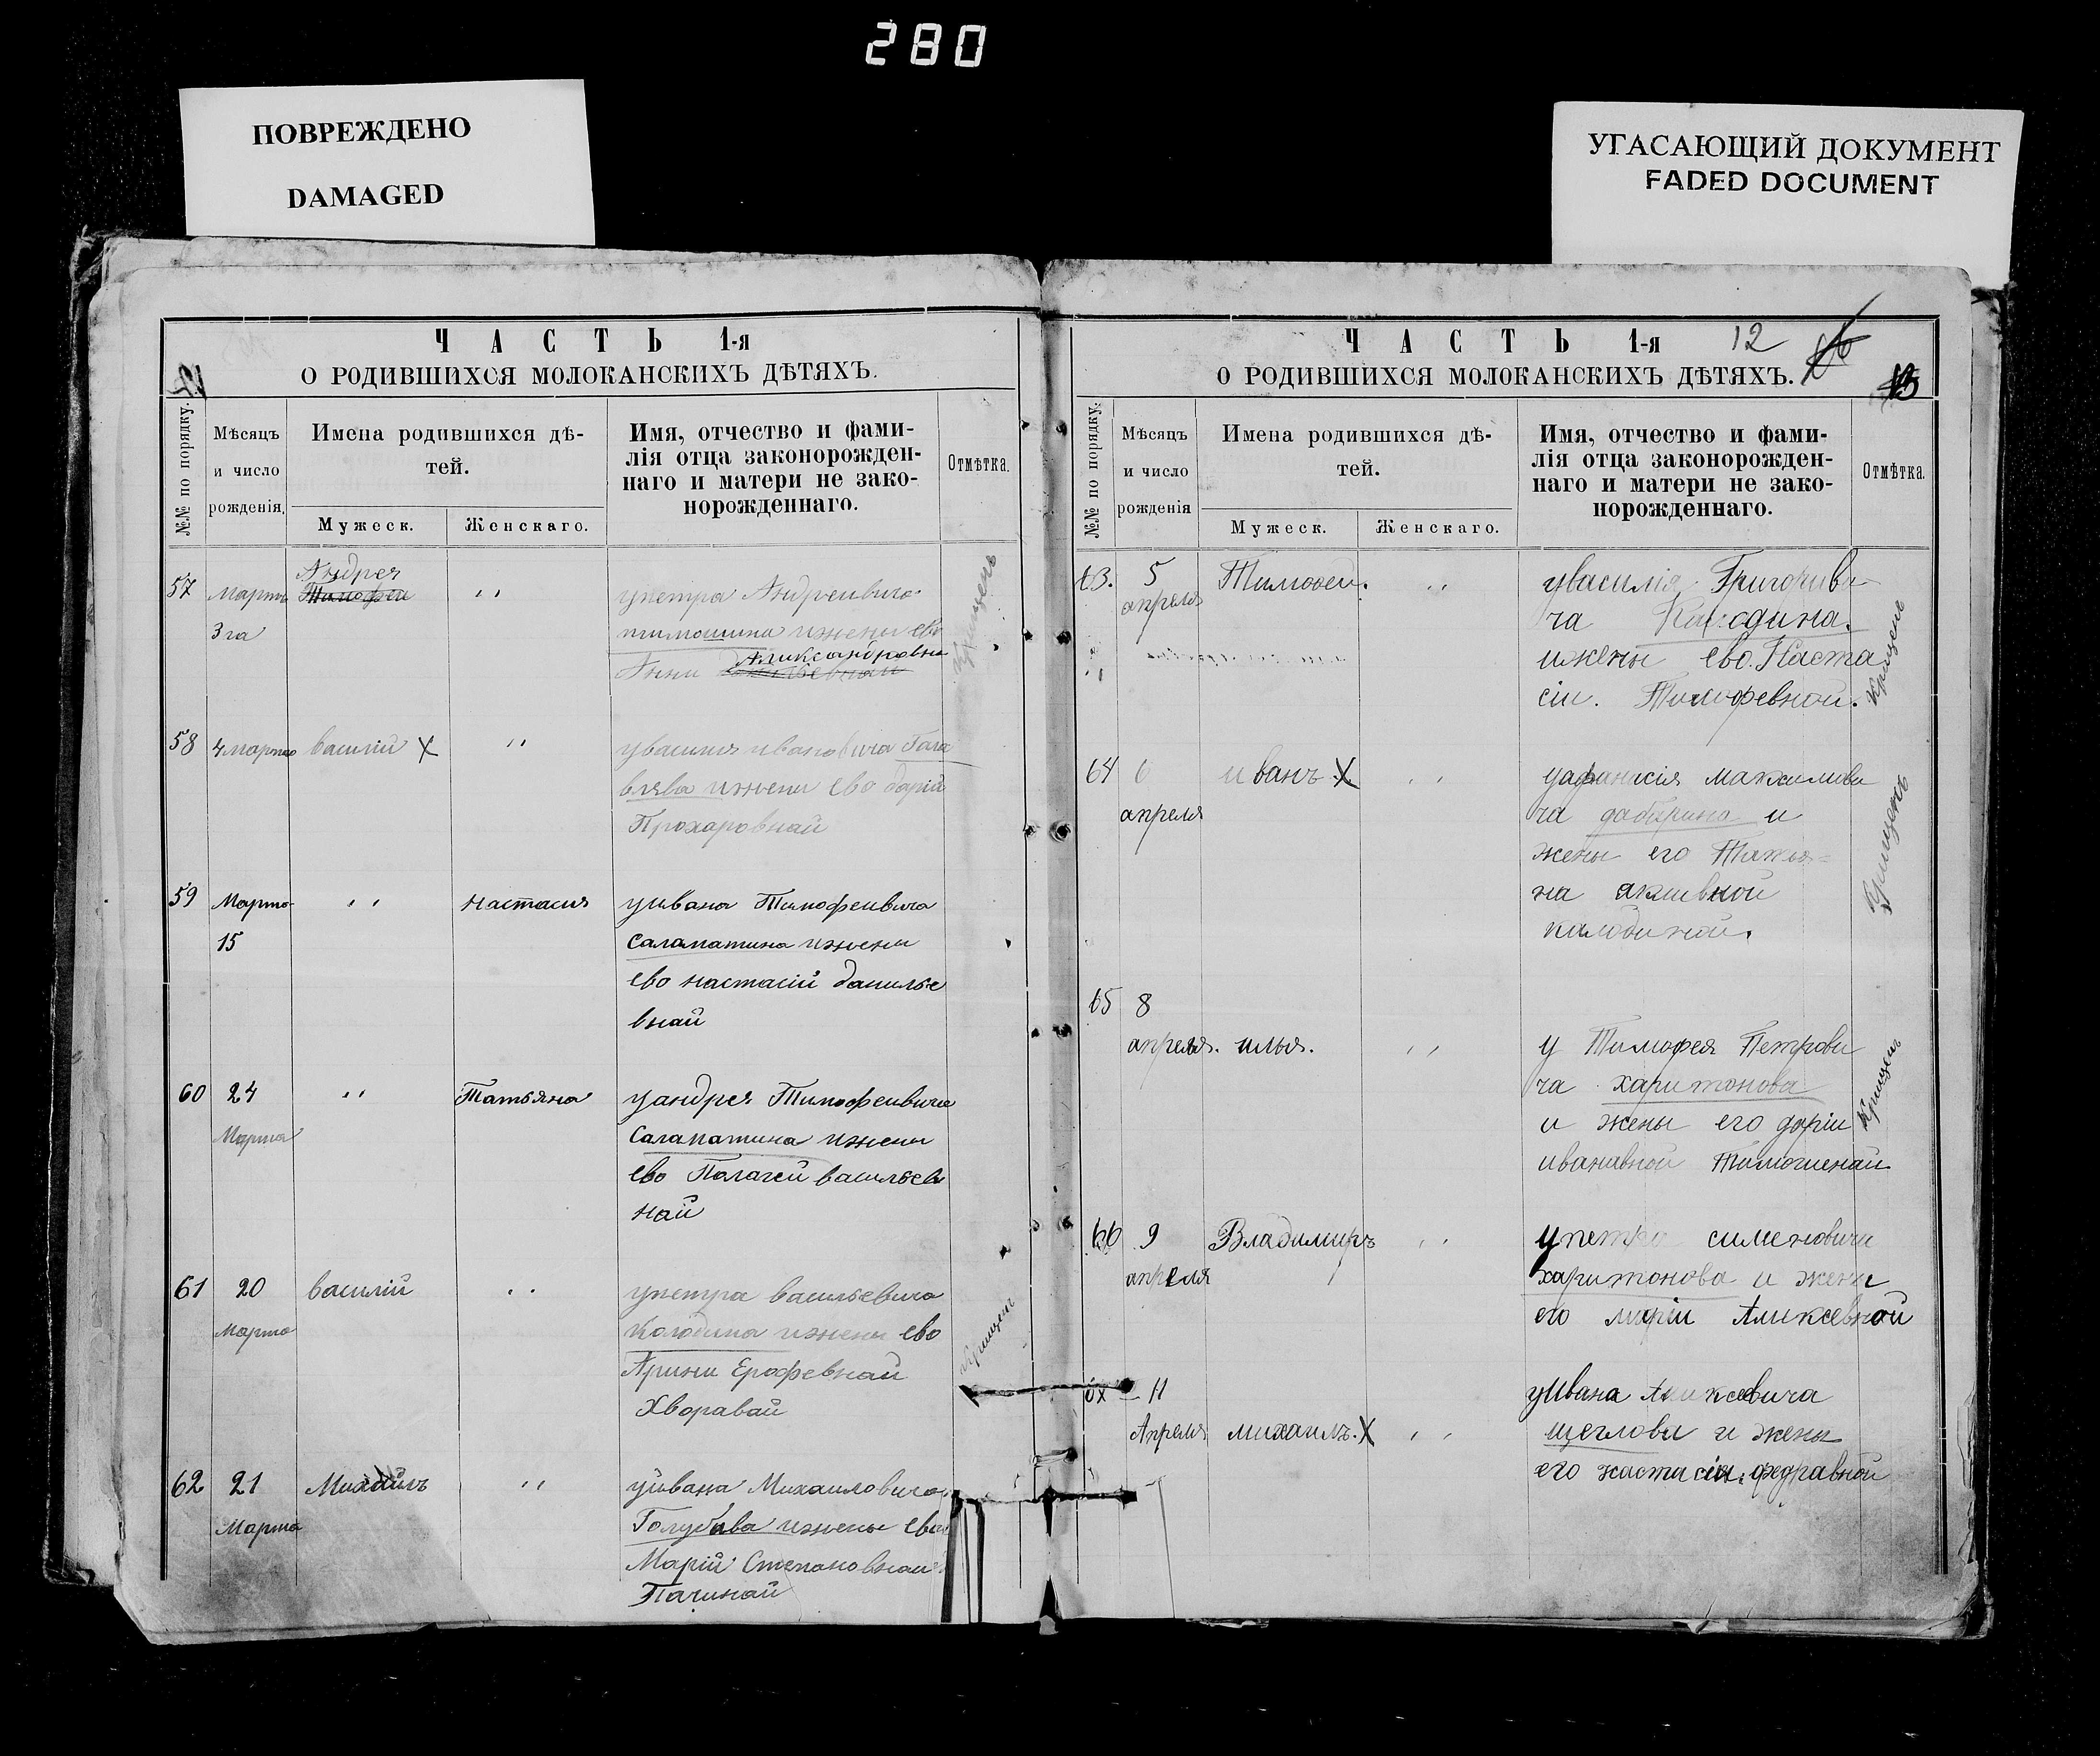 280
ПОВРЕЖДЕНО
DAMAGED
УГАСАЮЩИЙ ДОКУМЕНТ
FADED DOCUMENT
ЧАСТЬ 1-я
О РОДИВШИХСЯ МОЛОКАНСКИХЪ ДѢТЯХЪ.
№№ по порядку.
Мѣсяцъ
и число
рожденія.
Имена родившихся дѣ-
тей.
Мужеск.
Женскаго.
Имя, отчество и фами-
лія отца законорожден-
наго и матери не зако-
норожденнаго.
Отмѣтка.
Андрея
57 марта Тимофеи " упетра Андреивича
3 га тимошина ижени ево
Александровни
Анни
Крищенъ
58 4 марта василий X " увасилия ивановича Гала
влява ижени ево дарій
Прохаровнай
59 Марта " настасия уивана Тимофеивича
15 саламатина ижени
ево настасій данилье
внай
60 24 " Татьяна уандрея Тимофеивича
Марта Саламатина ижени
ево Палагей васильев
най
61 20 василій " упетра васильевича
марта Колодина ижени ево
Арини Ерофевнай
Хворавай
Крищенъ
62 21 Михаилъ " уивана Михаиловича
Марта Голубава ижены ево
Марій Степановнай
Пачинай
ЧАСТЬ 1-я 12
О РОДИВШИХСЯ МОЛОКАНСКИХЪ ДѢТЯХЪ.
13
№№ по порядку.
Мѣсяцъ
и число
рожденія
Имена родившихся дѣ-
тей.
Мужеск.
Женскаго.
Имя, отчество и фами-
лія отца законорожден-
наго и матери не зако-
норожденнаго.
Отмѣтка.
63. 5 Тимофеи. " увасилія Григориви
апреля ча Калодина.
ижены ево. Наста
сіи. Тимофевной.
Крищенъ
64 6 иванъ X " уафанисія максимиви
апреля ча и
жены его Татья=
на акимвной
калодиной.
Крищенъ
65 8
апреля. илья. " у Тимофея Петрови
ча харитонова
и жены его даріи
иванавной Тимошенай
Крищенъ
66 9 Владимиръ " упетра сименовичи
апреля харитонова и жены
его маріи Аликсевной
11 уИвана Аликсевича
Апреля михаилъ. X " щеглова и жены
его настасіи. федравной